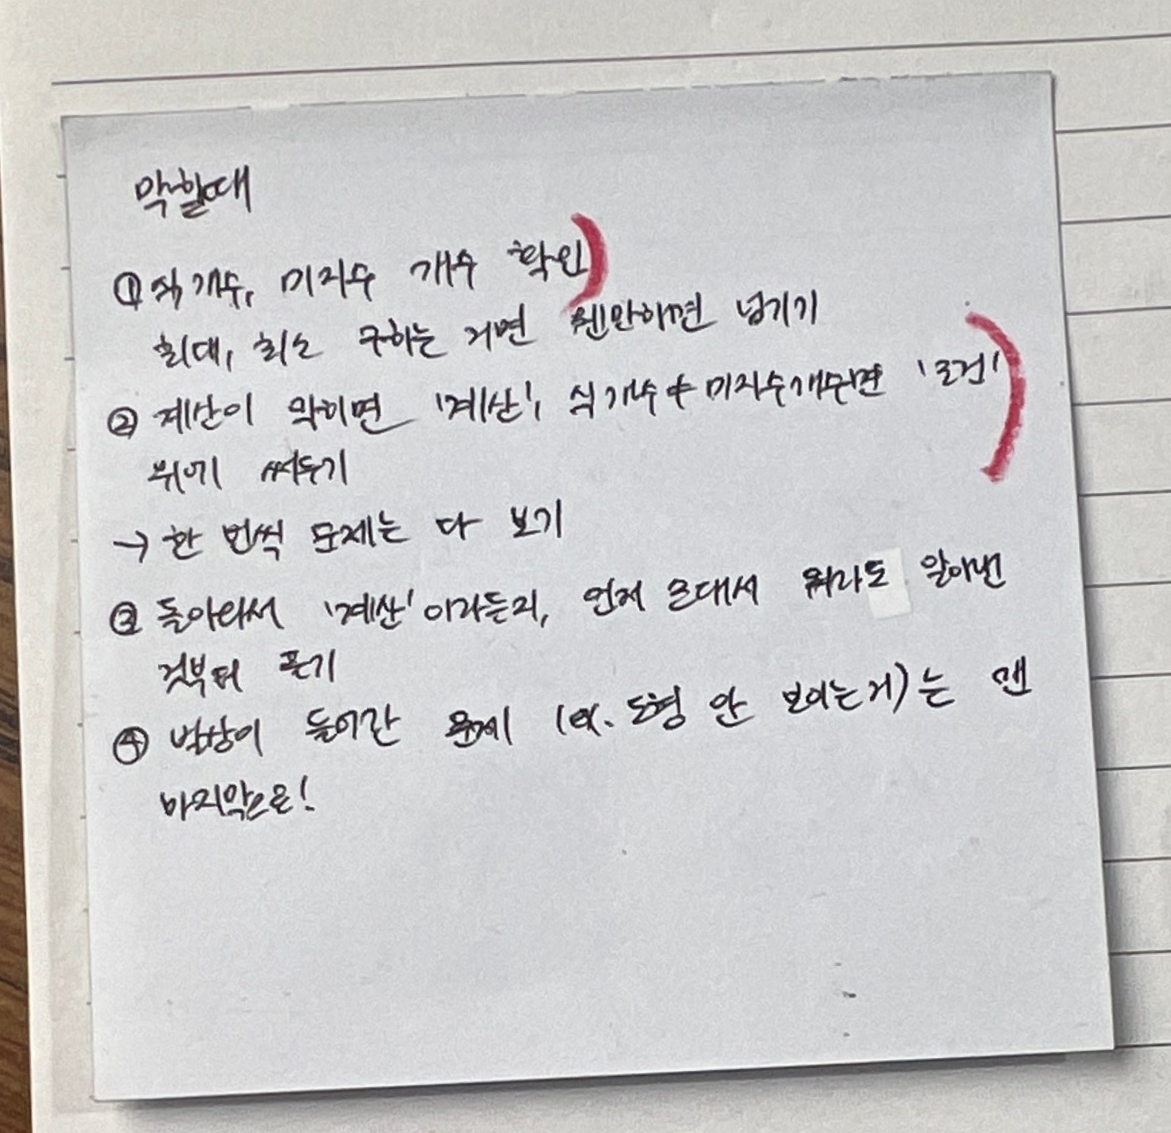 막힐때
① 식 개수, 미지수 개수 확인
최대, 최소 구하는 거면 웬만하면 넘기기
② 계산이 막히면 '계산', 식 개수 ≠ 미지수개수면 '조건'
위에 써두기
→ 한 번씩 문제는 다 보기
③ 돌아와서 '계산'이라든지, 언제 조대서 뭐라도 알아낸
것부터 풀기
④ 발상이 들어간 문제 (ex. 도형 안 보이는거)는 맨
마지막으로!